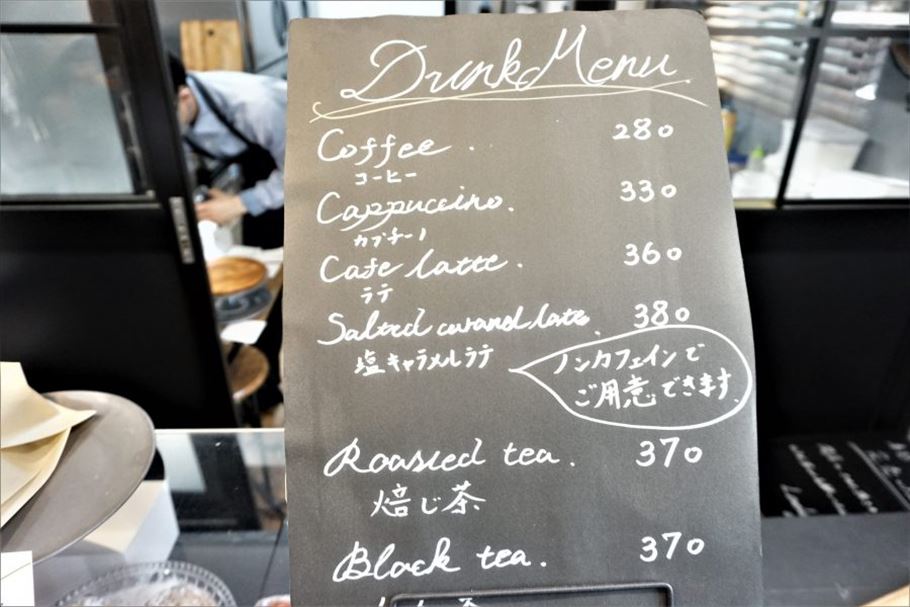 Drink Menu
Coffee . . 280
コーヒー
Cappuccino. 330
カプチーノ
Cafe latte . 360
ラテ
Salted caramel latte. 380
塩キャラメルラテ
ノンカフェインで
ご用意できます.
Roasted tea . 370
焙じ茶
Black tea . 370